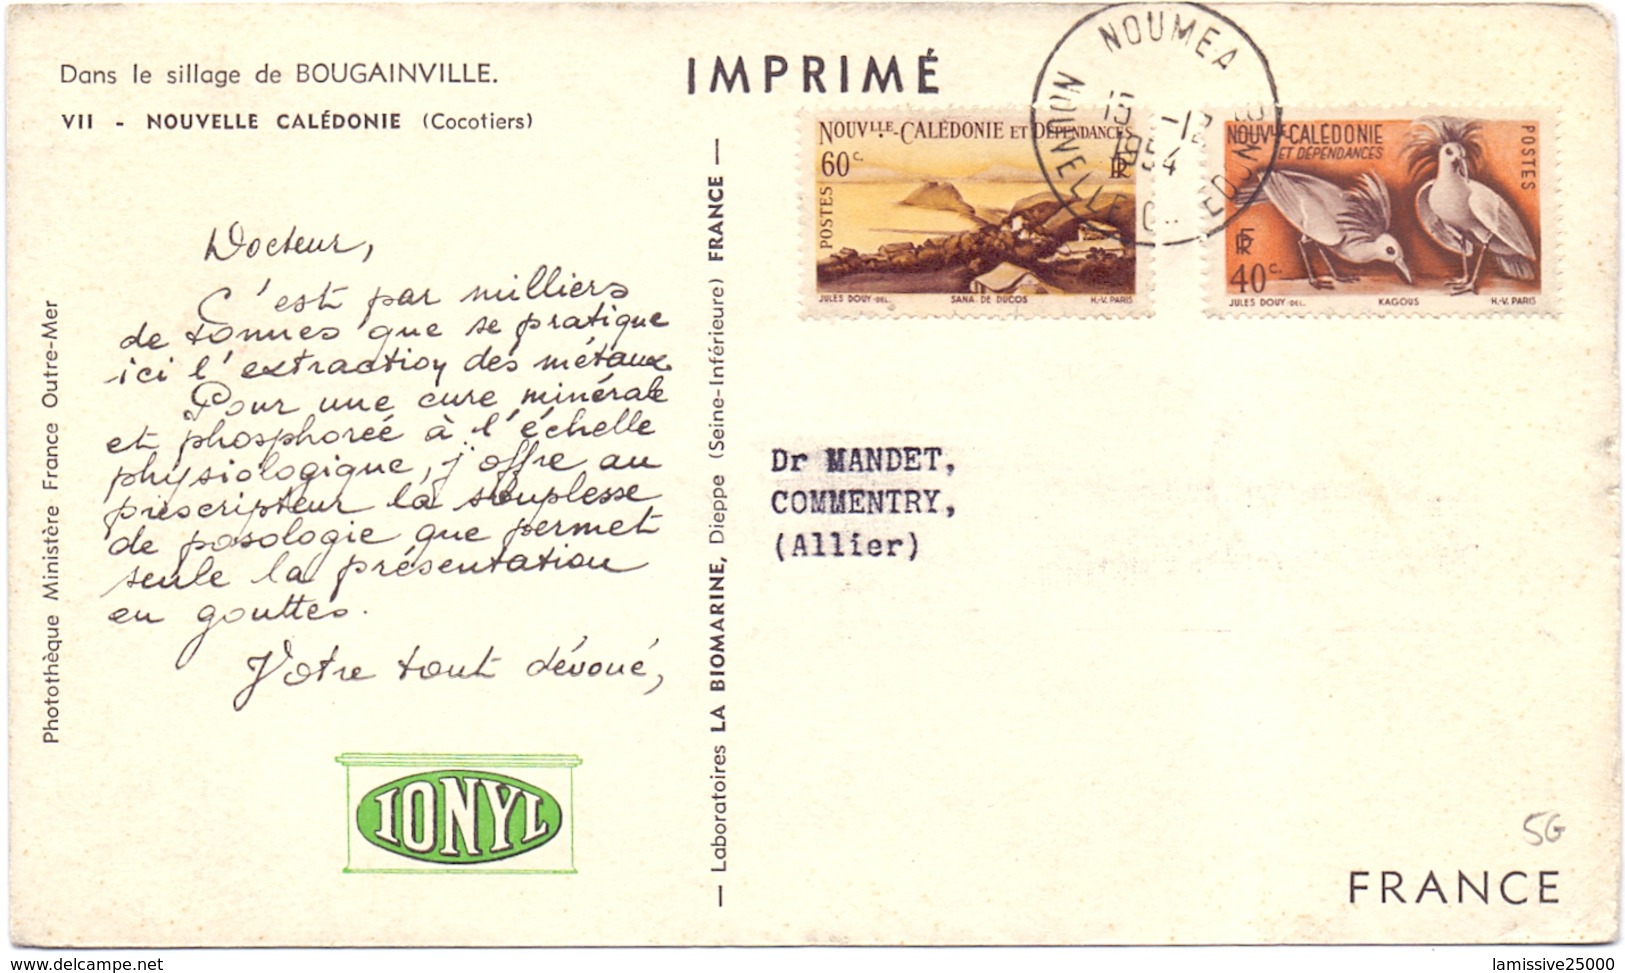 Dans le sillage de BOUGAINVILLE.
VII - NOUVELLE CALÉDONIE (Cocotiers)
IMPRIMÉ
NOUMEA
NOUVELLE CALEDONIE
1954
NOUVLLE-CALÉDONIE ET DÉPENDANCES
60c.
RF
POSTES
JULES DOUY DEL.
SANA. DE DUCOS
H.-V. PARIS
NOUVLLE-CALÉDONIE
ET DÉPENDANCES
POSTES
RF
40c.
JULES DOUY DEL.
KAGOUS
H.-V. PARIS
Docteur,
C'est par milliers
de tonnes que se pratique
ici l'extraction des métaux.
Pour une cure minérale
et phosphorée à l'échelle
physiologique, j'offre au
prescripteur la souplesse
de posologie que permet
seule la présentation
en gouttes.
Votre tout dévoué,
IONYL
Photothèque Ministère France Outre-Mer
— Laboratoires LA BIOMARINE, Dieppe (Seine-Inférieure) FRANCE —
Dr MANDET,
COMMENTRY,
(Allier)
5G
FRANCE
www.delcampe.net
lamissive25000